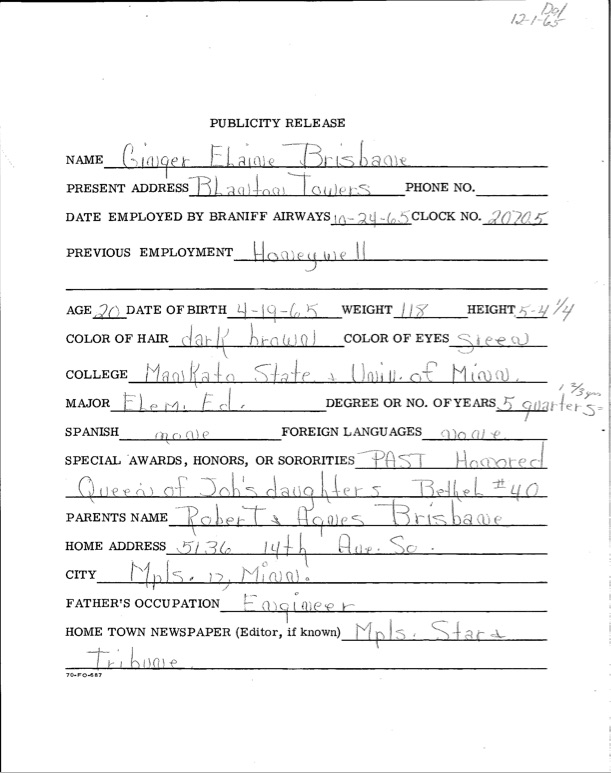 Dal
12-1-65
PUBLICITY RELEASE
NAME Ginger Elaine Brisbane
PRESENT ADDRESS Blanton Towers PHONE NO.
DATE EMPLOYED BY BRANIFF AIRWAYS 10-24-65 CLOCK NO. 20705
PREVIOUS EMPLOYMENT Honeywell
AGE 20 DATE OF BIRTH 4-19-65 WEIGHT 118 HEIGHT 5-4 1/4
COLOR OF HAIR dark brown COLOR OF EYES Green
COLLEGE Mankato State & Univ. of Minn.
1 2/3 yrs
MAJOR Elem. Ed. DEGREE OR NO. OF YEARS 5 quarters =
SPANISH none FOREIGN LANGUAGES none
SPECIAL AWARDS, HONORS, OR SORORITIES PAST Honored
Queen of Job's daughters Bethel #40
PARENTS NAME Robert & Agnes Brisbane
HOME ADDRESS 5136 14th Ave. So.
CITY Mpls. 17, Minn.
FATHER'S OCCUPATION Engineer
HOME TOWN NEWSPAPER (Editor, if known) Mpls. Star &
Tribune
70-FO-687